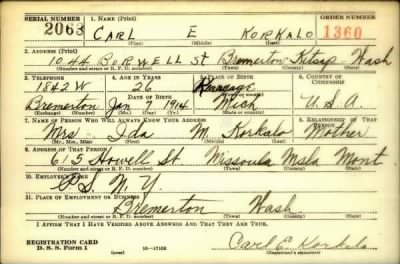 SERIAL NUMBER 1. NAME (Print) ORDER NUMBER
2063 CARL E KORKALO 1360
(First) (Middle) (Last)
2. ADDRESS (Print)
1044 BURWELL St. Bremerton Kitsap Wash
(Number and street or R. F. D. number) (Town) (County) (State)
3. TELEPHONE 4. AGE IN YEARS 5. PLACE OF BIRTH 6. COUNTRY OF CITIZENSHIP
1842 W 26
DATE OF BIRTH (Town or county)
Bremerton Jan 7 1914 Mich U.S.A.
(Exchange) (Number) (Mo.) (Day) (Yr.) (State or country)
7. NAME OF PERSON WHO WILL ALWAYS KNOW YOUR ADDRESS 8. RELATIONSHIP OF THAT PERSON
Mrs Ida M. Korkalo Mother
(Mr., Mrs., Miss) (First) (Middle) (Last)
9. ADDRESS OF THAT PERSON
615 Howell St. Missoula Msla Mont.
(Number and street or R. F. D. number) (Town) (County) (State)
10. EMPLOYER'S NAME
P.S. N. Y.
11. PLACE OF EMPLOYMENT OR BUSINESS
Bremerton Wash
(Number and street or R. F. D. number) (Town) (County) (State)
I AFFIRM THAT I HAVE VERIFIED ABOVE ANSWERS AND THAT THEY ARE TRUE.
REGISTRATION CARD
D. S. S. Form 1 (over) 16—17105 Carl E Korkalo
(Registrant's signature)